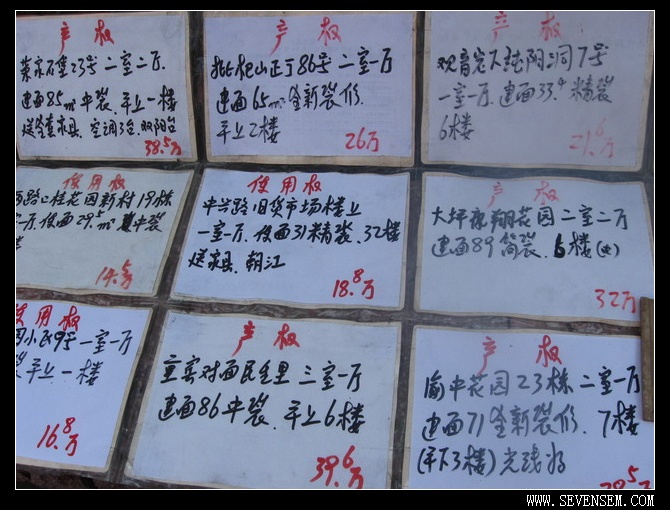 产权
菜家石堡23号 二室二厅
建面85m² 中装.平上一楼
送全套家具.空调3台.双阳台
38.5万
产权
枇杷山正街86号 二室一厅
建面65m² 全新装修.
平上2楼
26万
产权
观音岩下 7号
一室一厅.建面33.4 精装
6楼
21.6万
使用权
路口桂花园新村19栋
室一厅.使面29.5m² 中装
楼
14.5万
使用权
中兴路旧货市场楼上
一室一厅.使面31精装.32楼
送家具.朝江
18.8万
产权
大坪康翔花园二室二厅
建面89简装.6楼
32万
使用权
小区9号一室一厅
装平上一楼
16.8万
产权
重宾对面民生里 三室一厅
建面86中装.平上6楼
39.6万
产权
渝中花园23栋二室一厅
建面71全新装修.7楼
(平下3楼)光线好
WWW.SEVENSEM.COM